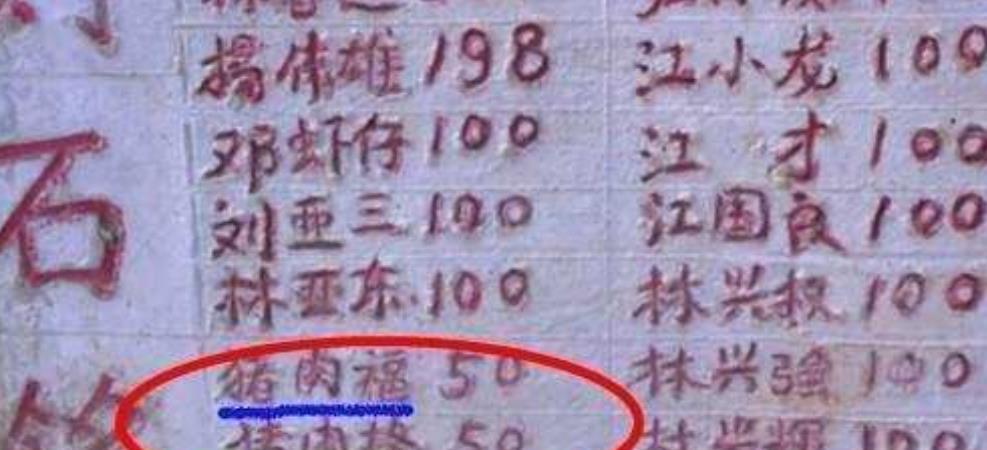 揭伟雄 198 江小龙 100
邓虾仔 100 江才 100
刘亚三 100 江国良 100
林亚东 100 林兴权 100
石
猪肉福 50 林兴强 100
猪肉 50 林兴辉 100